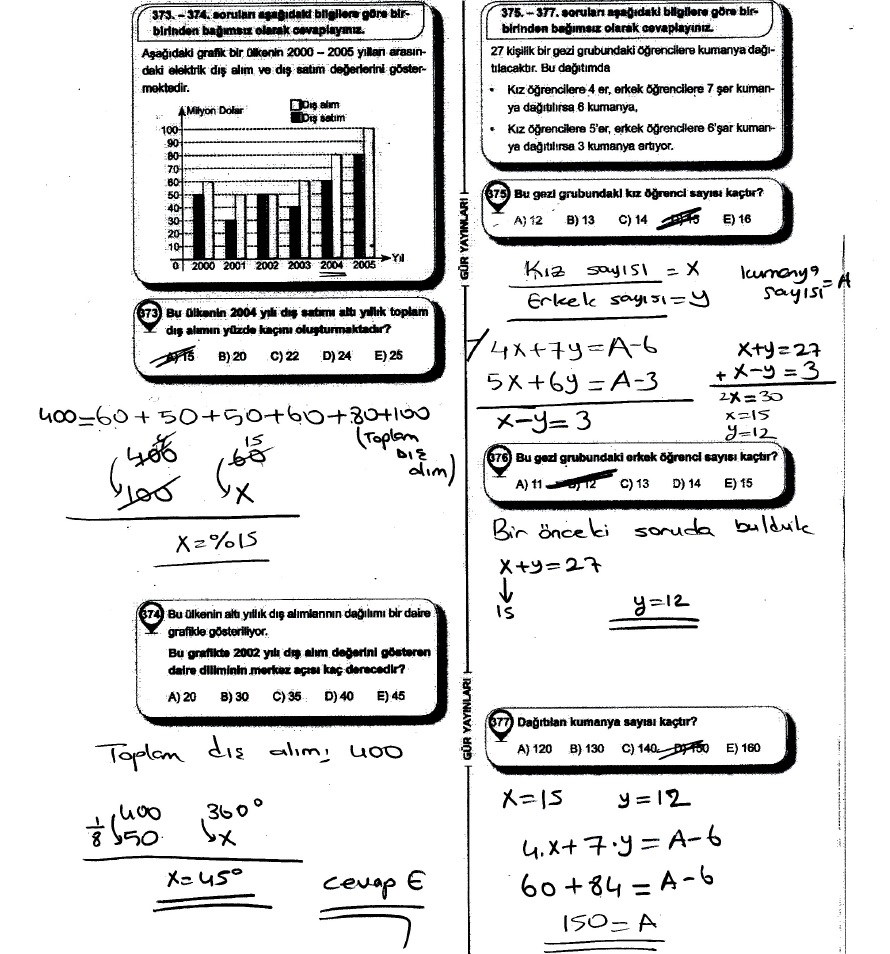 373. – 374. soruları aşağıdaki bilgilere göre bir-
birinden bağımsız olarak cevaplayınız.
Aşağıdaki grafik bir ülkenin 2000 – 2005 yılları arasın-
daki elektrik dış alım ve dış satım değerlerini göster-
mektedir.
Milyon Dolar
Dış alım
Dış satım
100
90
80
70
60
50
40
30
20
10
0 2000 2001 2002 2003 2004 2005 Yıl
373 Bu ülkenin 2004 yılı dış satımı altı yıllık toplam
dış alımın yüzde kaçını oluşturmaktadır?
A) 15 B) 20 C) 22 D) 24 E) 25
400=60+50+50+60+80+100
(Toplam dış alım)
4 15
400 60
100 X
X=%15
374 Bu ülkenin altı yıllık dış alımlarının dağılımı bir daire
grafikle gösteriliyor.
Bu grafikte 2002 yılı dış alım değerini gösteren
daire diliminin merkez açısı kaç derecedir?
A) 20 B) 30 C) 35 D) 40 E) 45
Toplam dış alım: 400
400 360°
1/8 50 X
X=45°
cevap E
GÜR YAYINLARI
GÜR YAYINLARI
375. – 377. soruları aşağıdaki bilgilere göre bir-
birinden bağımsız olarak cevaplayınız.
27 kişilik bir gezi grubundaki öğrencilere kumanya dağı-
tılacaktır. Bu dağıtımda
• Kız öğrencilere 4 er, erkek öğrencilere 7 şer kuman-
ya dağıtılırsa 6 kumanya,
• Kız öğrencilere 5'er, erkek öğrencilere 6'şar kuman-
ya dağıtılırsa 3 kumanya artıyor.
375 Bu gezi grubundaki kız öğrenci sayısı kaçtır?
A) 12 B) 13 C) 14 D) 15 E) 16
Kız sayısı = X
Erkek sayısı = y
kumanya sayısı = A
4x+7y=A-6
5x+6y=A-3
x-y=3
x+y=27
+ x-y=3
2x=30
x=15
y=12
376 Bu gezi grubundaki erkek öğrenci sayısı kaçtır?
A) 11 B) 12 C) 13 D) 14 E) 15
Bir önceki soruda bulduk
x+y=27
15
y=12
377 Dağıtılan kumanya sayısı kaçtır?
A) 120 B) 130 C) 140 D) 150 E) 160
x=15 y=12
4.x+7.y=A-6
60+84=A-6
150=A